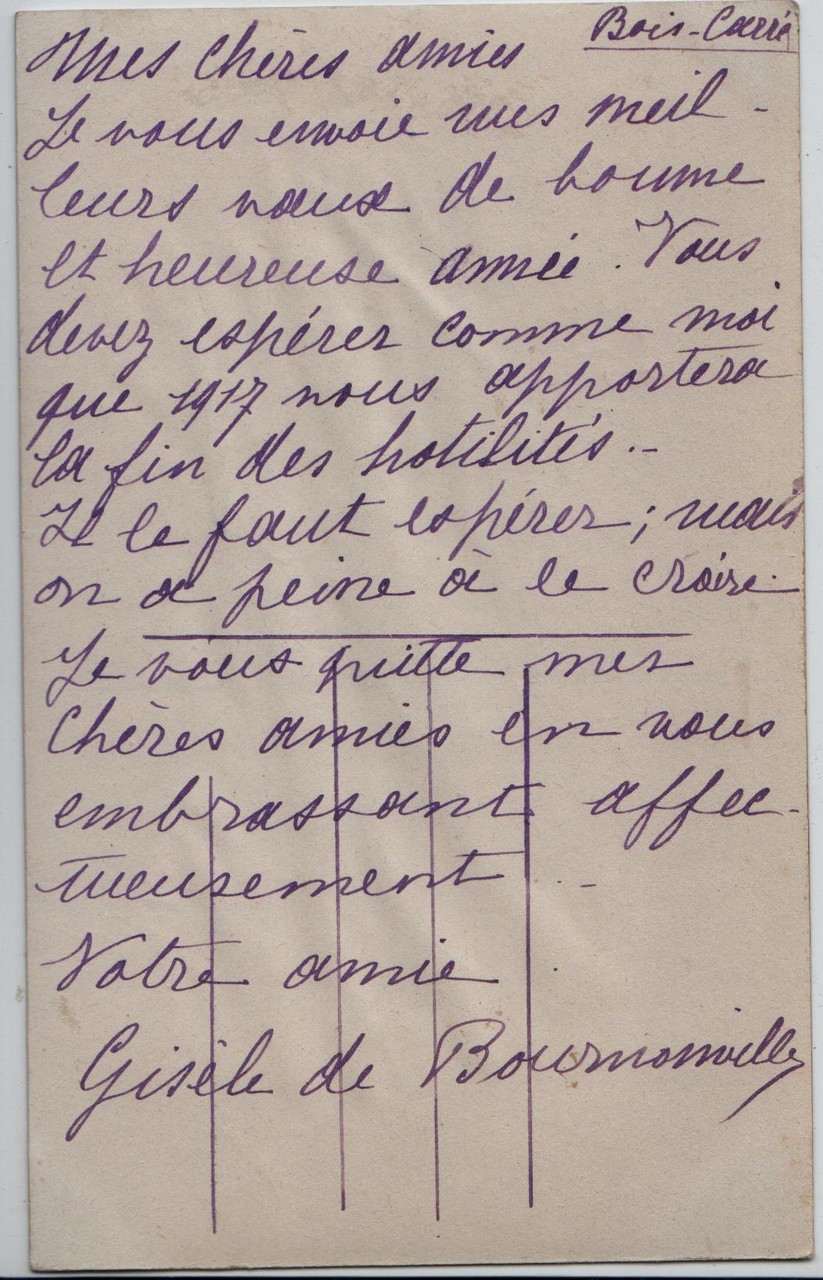 Bois-Carré
Mes chères amies
Je vous envoie mes meil-
leurs vœux de bonne
et heureuse année. Vous
devez espérer comme moi
que 1917 nous apportera
la fin des hotilités.-
Il le faut espérer; mais
on a peine à le croire.
Je vous quitte mes
chères amies en vous
embrassant affec-
tueusement.-
Votre amie
Gisèle de Bournonville